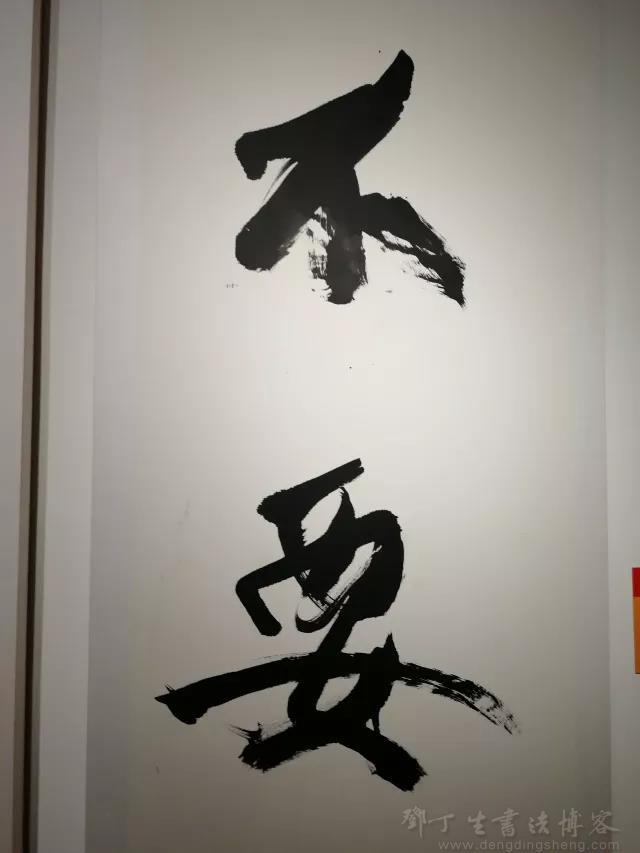 不
要
鄧丁生書法博客
www.dengdingsheng.com